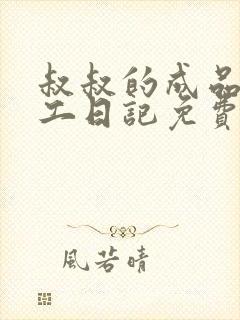 叔叔的成品
工日記免費
風若晴